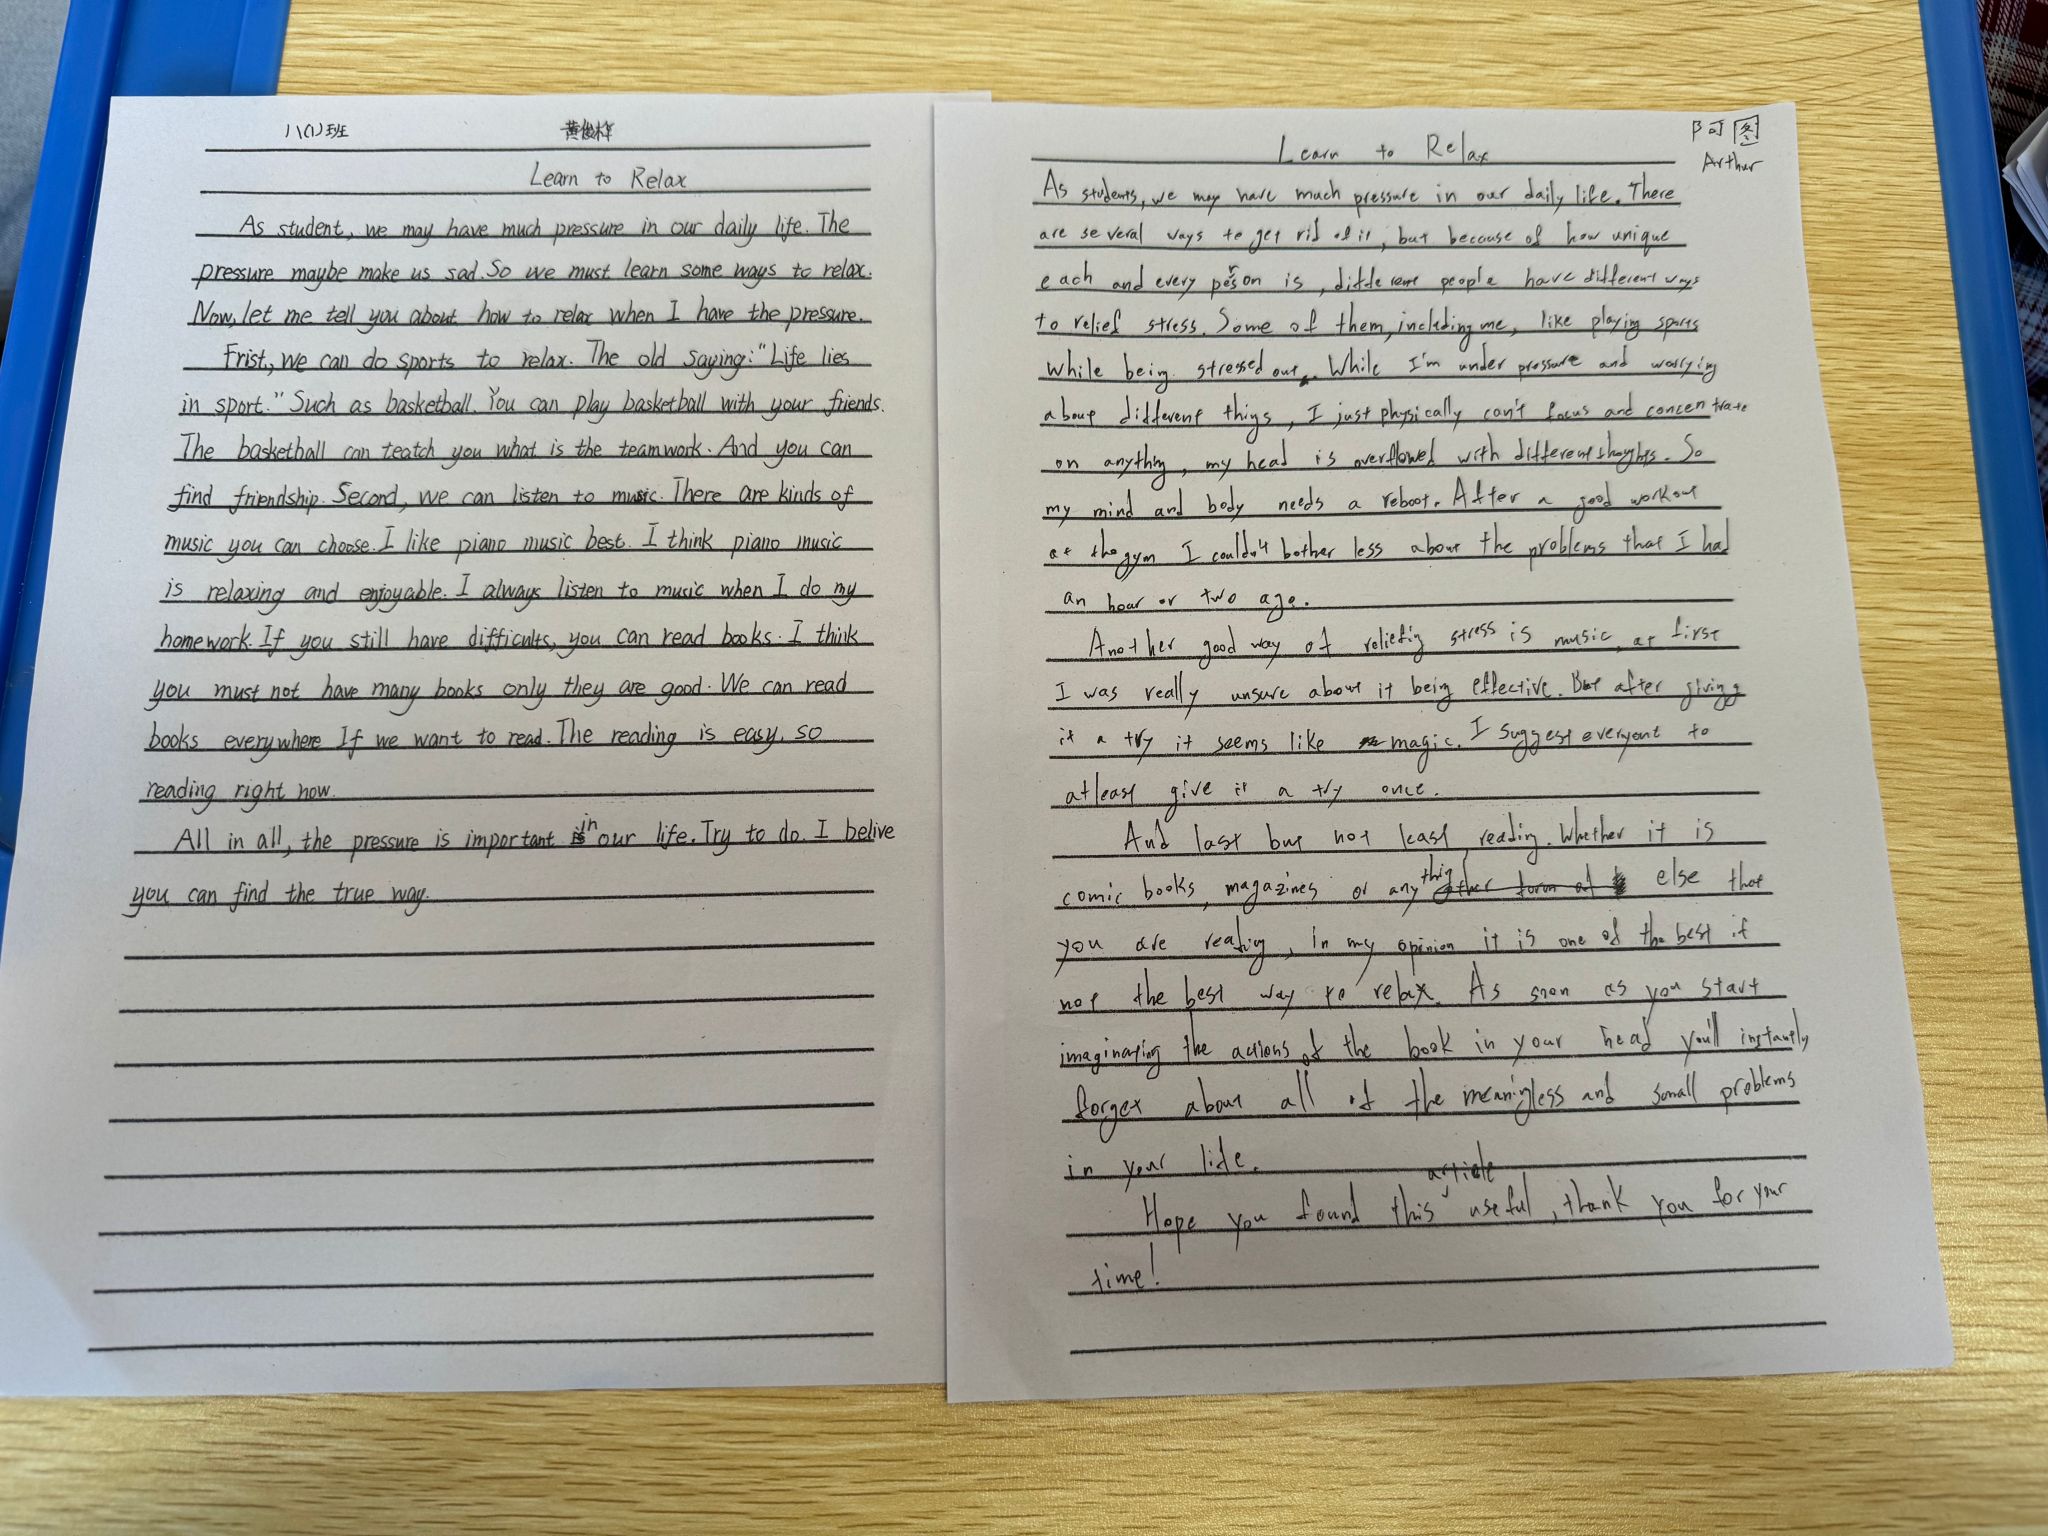 八(1)班 黄俊梓
Learn to Relax
As student, we may have much pressure in our daily life. The
pressure maybe make us sad. So we must learn some ways to relax.
Now, let me tell you about how to relax when I have the pressure.
Frist, we can do sports to relax. The old saying: "Life lies
in sport." Such as basketball. You can play basketball with your friends.
The basketball can teatch you what is the teamwork. And you can
find friendship. Second, we can listen to music. There are kinds of
music you can choose. I like piano music best. I think piano music
is relaxing and enjoyable. I always listen to music when I do my
homework. If you still have difficults, you can read books. I think
you must not have many books only they are good. We can read
books everywhere If we want to read. The reading is easy, so
reading right now.
All in all, the pressure is important in our life. Try to do. I belive
you can find the true way.
阿图
Arthur
Learn to Relax
As students, we may have much pressure in our daily life. There
are several ways to get rid of it, but because of how unique
each and every person is, different people have different ways
to relief stress. Some of them, including me, like playing sports
while being stressed out. While I'm under pressure and worrying
about different things, I just physically can't focus and concentrate
on anything, my head is overflowed with different thoghts. So
my mind and body needs a reboot. After a good workout
at the gym I couldn't bother less about the problems that I had
an hour or two ago.
Another good way of reliefig stress is music, at first
I was really unsure about it being effective. But after giving
it a try it seems like magic. I suggest everyont to
atleast give it a try once.
And last but not least, reading. Whether it is
comic books, magazines or anything else that
you are reading, in my opinion it is one of the best if
not the best way to relax. As soon as you start
imaginating the actions of the book in your head you'll instantly
forget about all of the meaningless and small problems
in your life.
Hope you found this article useful, thank you for your
time!